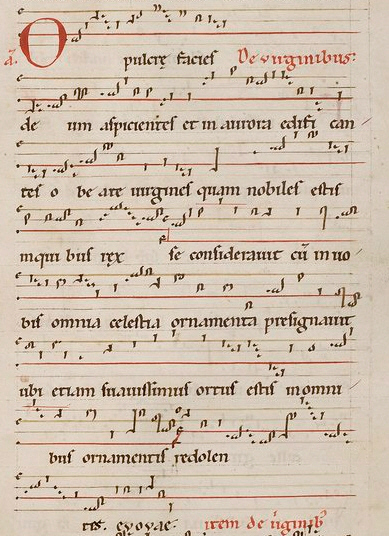 A. O pulcrę facies De virginibus.
de um aspicientes et in aurora edifi can
tes o be ate uirgines quam nobiles estis
in qui bus rex se considerauit cū in uo
bis omnia celestia ornamenta presignauit
ubi etiam suauissimus ortus estis in omni
bus ornamentis redolen
tes. evovae. item de uirginib